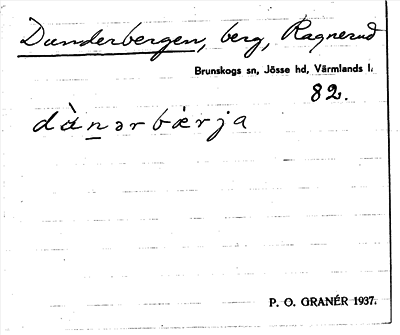 Dunderbergen, berg, Ragnerud
Brunskogs sn, Jösse hd, Värmlands l.
82.
dànərbærja
P. O. GRANÉR 1937.